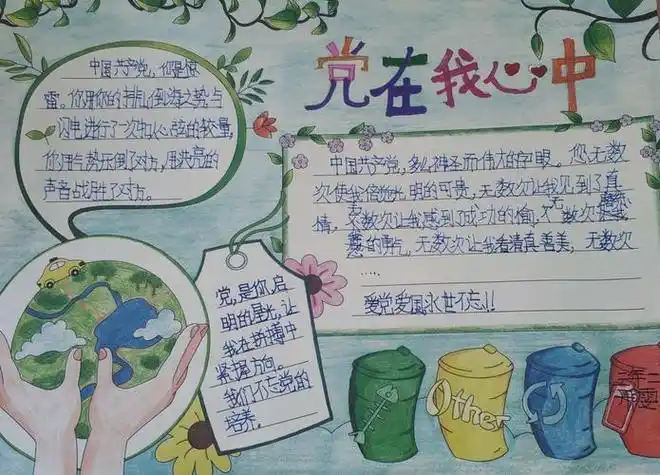 党在我心中
中国共产党，你是惊
雷。你用你的排山倒海之势与
闪电进行了一次扣人心弦的较量，
你用气势压倒了对方，用洪亮的
声音战胜了对方。
中国共产党，多么神圣而伟大的字眼。您无数
次使我倍觉光明的可贵，无数次让我见到了真
情，无数次让我感到了成功的愉 无数次
的事气，无数次让我看清真善美，无数次
……
爱党爱国永世不忘!!
党，是你启
明的星光，让
我在拼搏中
紧握方向。
我们不忘党的
培养。
Other